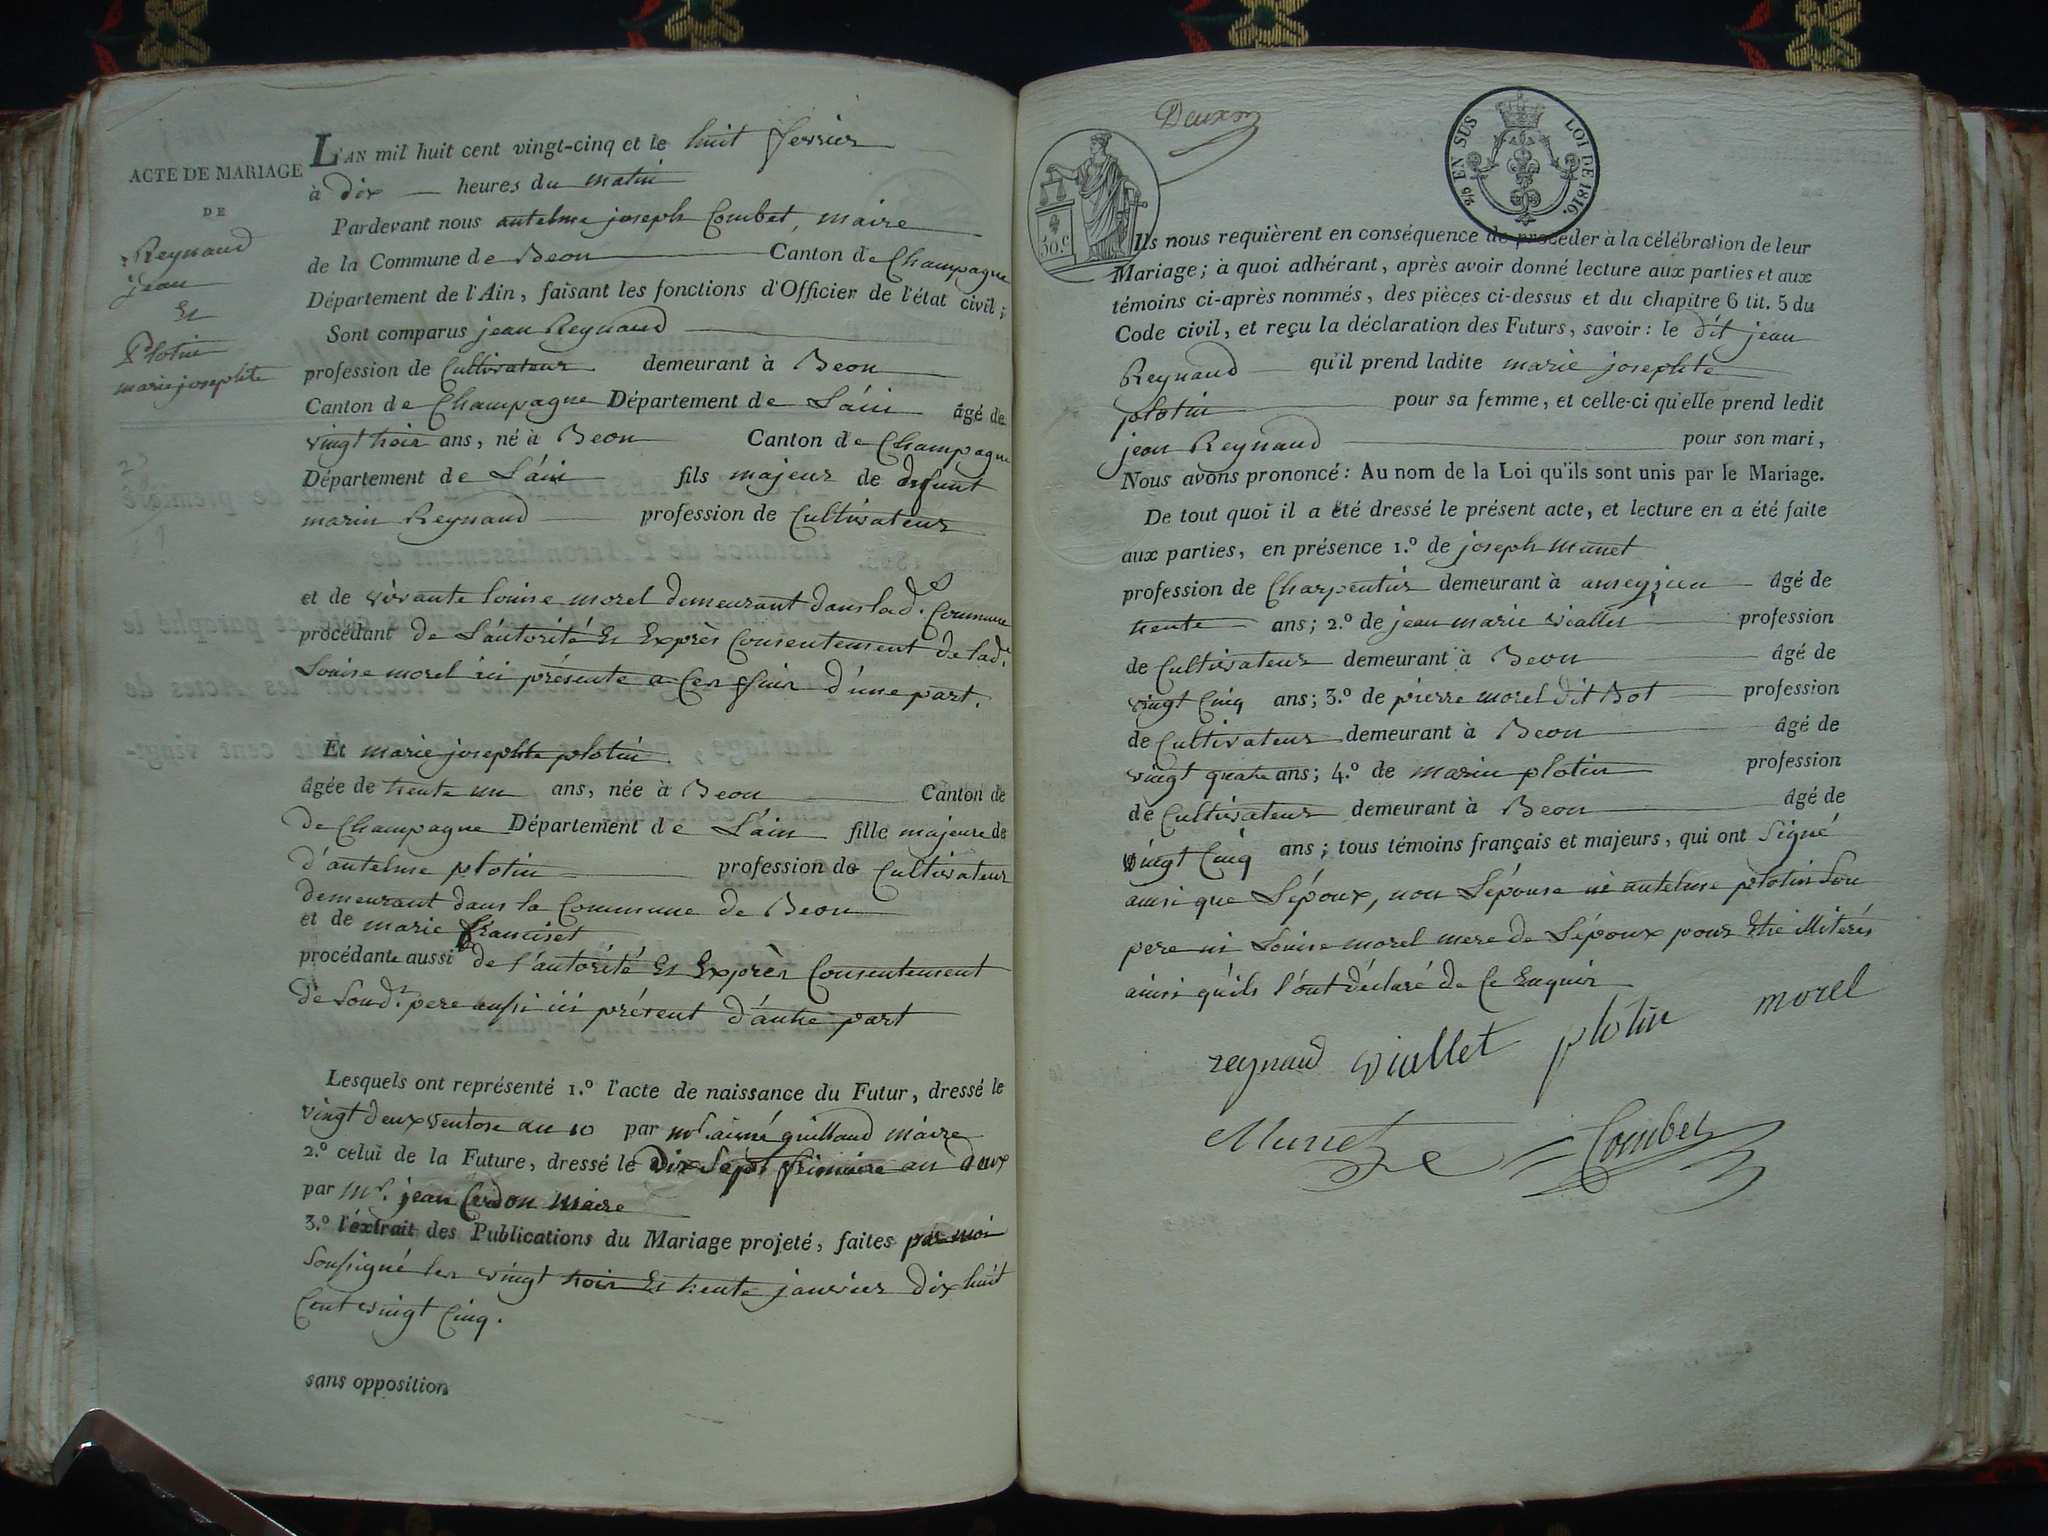 ACTE DE MARIAGE
DE
Reynaud
jean
Et
Plotin
marie josephte
L'AN mil huit cent vingt-cinq et le huit fevrier
à dix heures du matin
Pardevant nous antelme joseph Combet, maire
de la Commune de Beon Canton de Champagne
Département de l'Ain, faisant les fonctions d'Officier de l'état civil;
Sont comparus jean Reynaud
profession de Cultivateur demeurant à Beon
Canton de Champagne Département de L'áin âgé de
vingt trois ans, né à Beon Canton de Champagne
Département de L'áin fils majeur de defunt
marin Reynaud profession de Cultivateur
et de vivante Louise morel demeurant dans lad.e Commune
procédant de L'autorité Et Exprès Consentement de lad.e
Louise morel ici présente a Ces fins d'une part.
Et marie josephte plotin
âgée de trente un ans, née à Beon Canton de
de Champagne Département de L'áin fille majeure de
d'antelme plotin profession de Cultivateur
demeurant dans la Commune de Beon
et de marie franciset
procédante aussi de l'autorité Et Exprès Consentement
de Sond.t pere aussi ici présent d'autre part
Lesquels ont représenté 1.º l'acte de naissance du Futur, dressé le
vingt deux ventose an 10 par mr. aimé guillaud maire
2.º celui de la Future, dressé le Dix Sept frimaire an deux
par Mr. jean Cerdon maire
3.º l'éxtrait des Publications du Mariage projeté, faites par moi
Soussigné les vingt trois Et trente janvier dix huit
Cent vingt Cinq.
sans opposition
Deux
30 c
EN SUS LOI DE 1816.
Ils nous requièrent en conséquence de procéder à la célébration de leur
Mariage; à quoi adhérant, après avoir donné lecture aux parties et aux
témoins ci-après nommés, des pièces ci-dessus et du chapitre 6 tit. 5 du
Code civil, et reçu la déclaration des Futurs, savoir: le dit jean
Reynaud qu'il prend ladite marie josephte
plotin pour sa femme, et celle-ci qu'elle prend ledit
jean Reynaud pour son mari,
Nous avons prononcé: Au nom de la Loi qu'ils sont unis par le Mariage.
De tout quoi il a été dressé le présent acte, et lecture en a été faite
aux parties, en présence 1.º de joseph munet
profession de Charpentier demeurant à âgé de
trente ans; 2.º de jean marie viallet profession
de Cultivateur demeurant à Beon âgé de
vingt Cinq ans; 3.º de pierre morel dit Bot profession
de Cultivateur demeurant à Beon âgé de
vingt quatre ans; 4.º de marin plotin profession
de Cultivateur demeurant à Beon âgé de
vingt Cinq ans; tous témoins français et majeurs, qui ont Signé
ainsi que L'époux, non L'épouse ni antelme plotin Son
pere ni Louise morel mere de L'époux pour Etre illiterés
ainsi qu'ils l'ont déclaré de Ce Enquis
reynaud viallet plotin morel
Munet Combet